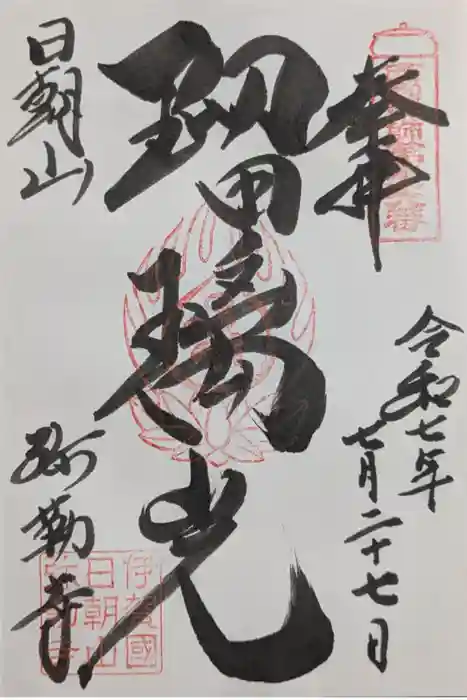 奉拝
令和七年
七月二十七日
瑠璃光
日朝山
弥勒寺
伊賀國
日朝山
弥勒寺